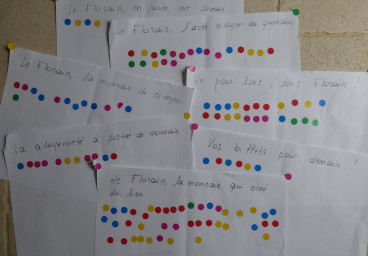 Le Florain, en route vers demain
Le Florain, l'acte citoyen au quotidien
Le Florain, la monnaie du citoyen
Un pour tous, tous Florain
La citoyenneté à portée de monnaie
Vos biffets pour demain !
Le Florain, la monnaie qui crée
du lien